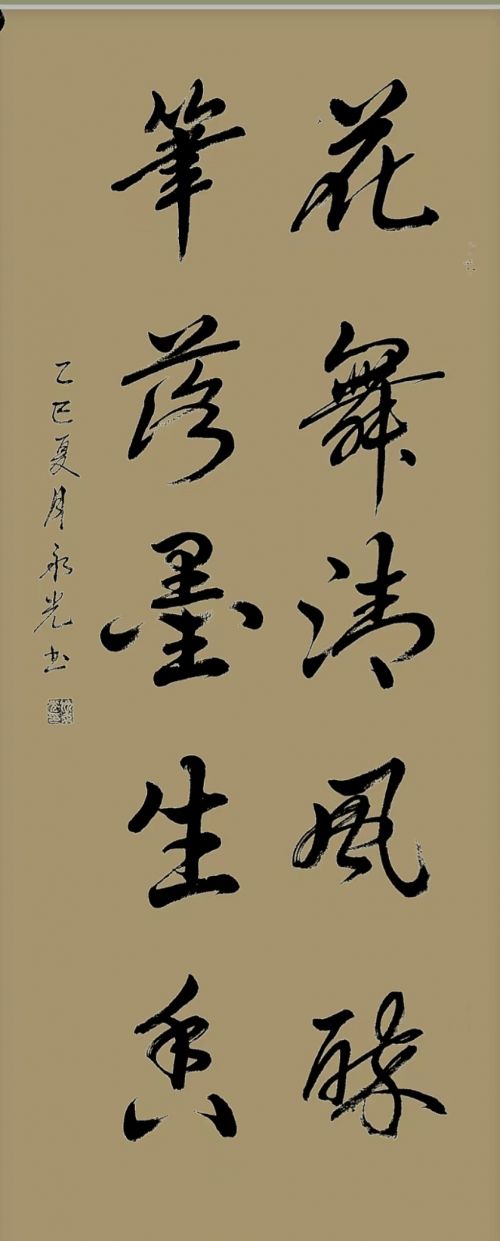 花舞清風醉
筆落墨生香
乙巳夏月永光书